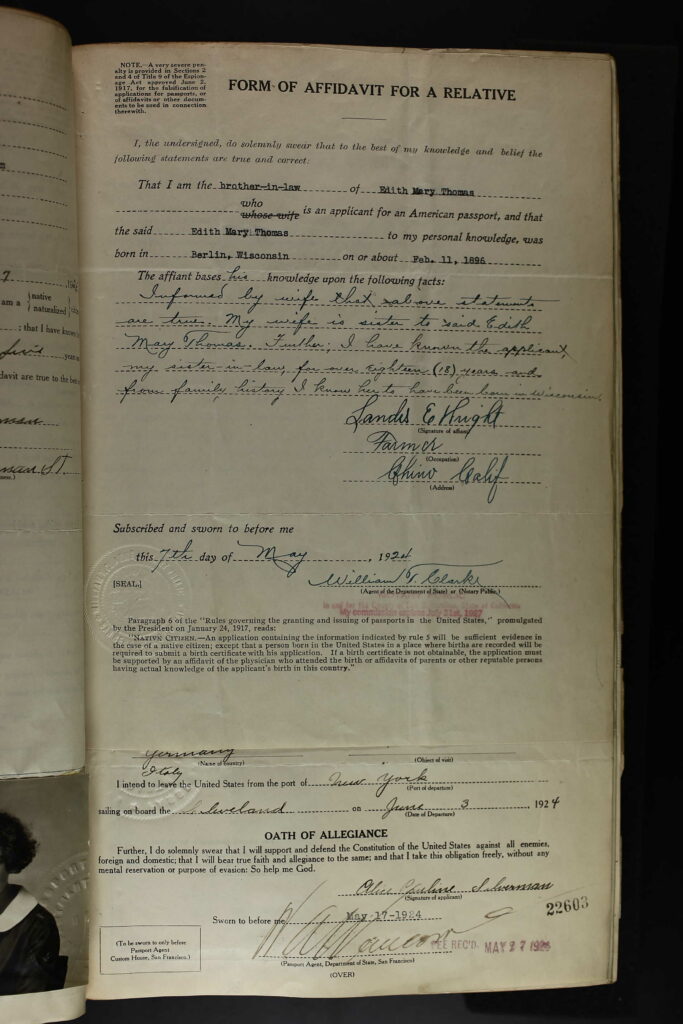 NOTE.—A very severe pen-
alty is provided in Sections 2
and 4 of Title 9 of the Espion-
age Act approved June 2,
1917, for the falsification of
applications for passports, or
of affidavits or other docum-
ents to be used in connection
therewith.
FORM OF AFFIDAVIT FOR A RELATIVE
I, the undersigned, do solemnly swear that to the best of my knowledge and belief the
following statements are true and correct:
That I am the brother-in-law of Edith Mary Thomas
who
whose wife is an applicant for an American passport, and that
the said Edith Mary Thomas to my personal knowledge, was
born in Berlin, Wisconsin on or about Feb. 11, 1896
The affiant bases his knowledge upon the following facts:
Informed by wife that above statements
are true. My wife is sister to said Edith
May Thomas. Further, I have known the applicant,
my sister-in-law, for over eighteen (18) years and
from family history I know her to have been born in Wisconsin.
Landis E
(Signature of affiant)
Farmer
(Occupation)
Chino Calif
(Address)
Subscribed and sworn to before me
this 7th day of May, 1924
[SEAL.]
William T. Clarke
(Agent of the Department of State) or (Notary Public.)
My commission expires July 21st, 1927
Paragraph 6 of the "Rules governing the granting and issuing of passports in the United States," promulgated
by the President on January 24, 1917, reads:
"NATIVE CITIZEN.—An application containing the information indicated by rule 5 will be sufficient evidence in
the case of a native citizen; except that a person born in the United States in a place where births are recorded will be
required to submit a birth certificate with his application. If a birth certificate is not obtainable, the application must
be supported by an affidavit of the physician who attended the birth or affidavits of parents or other reputable persons
having actual knowledge of the applicant's birth in this country."
Germany
(Name of country) (Object of visit)
Italy
I intend to leave the United States from the port of New York
(Port of departure)
sailing on board the Cleveland on June 3, 1924
(Date of Departure)
OATH OF ALLEGIANCE
Further, I do solemnly swear that I will support and defend the Constitution of the United States against all enemies,
foreign and domestic; that I will bear true faith and allegiance to the same; and that I take this obligation freely, without any
mental reservation or purpose of evasion: So help me God.
Alice Pauline Silverman
(Signature of applicant)
22603
Sworn to before me May-17-1924
FEE REC'D. MAY 27 1924
(To be sworn to only before
Passport Agent
Custom House, San Francisco.)
(Passport Agent, Department of State, San Francisco)
(OVER)